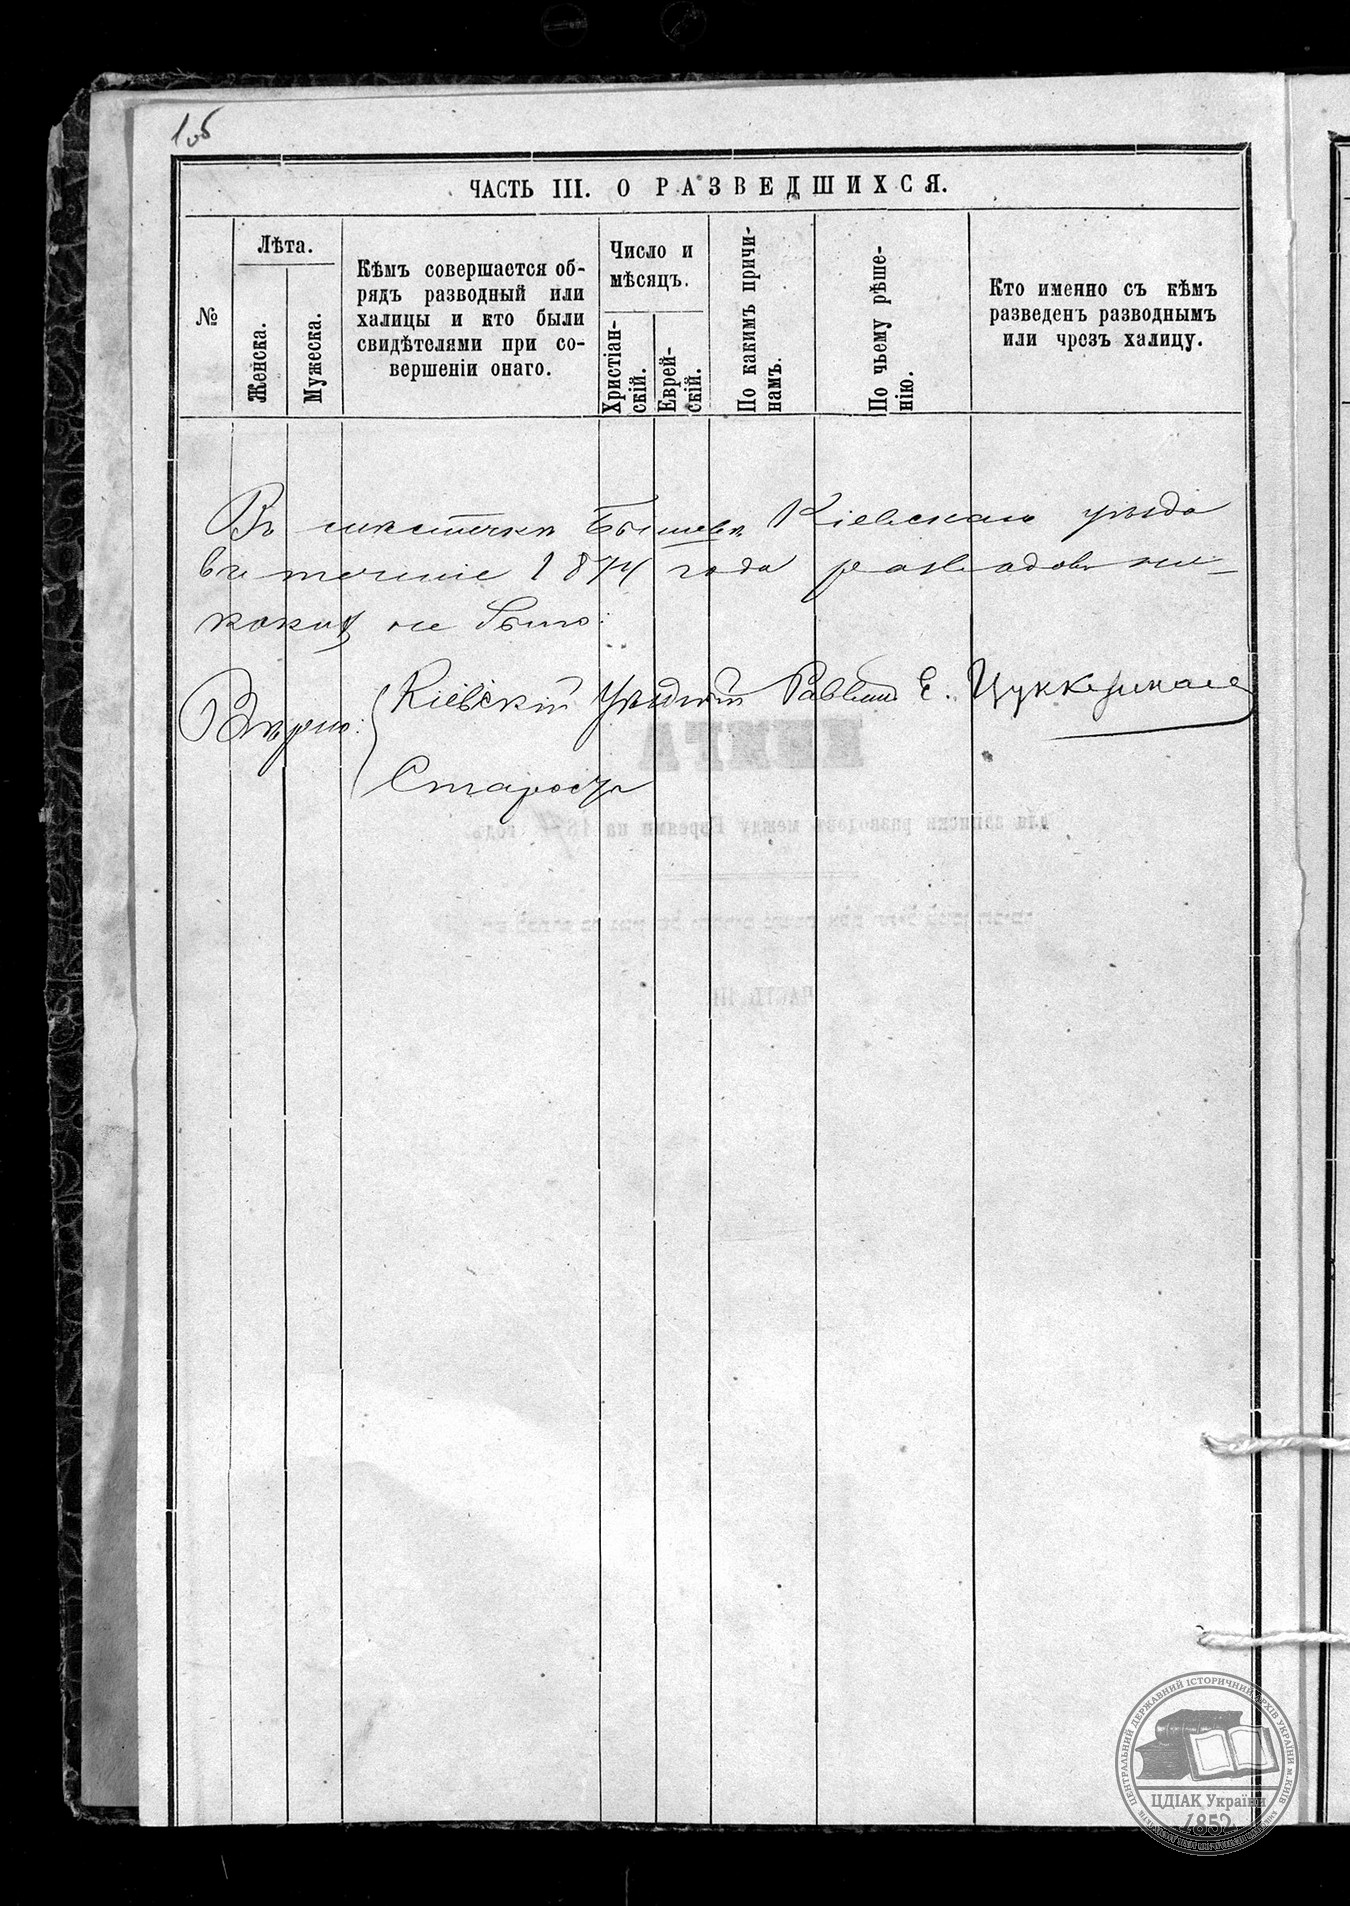 1об
ЧАСТЬ III. О РАЗВЕДШИХСЯ.
№
Лѣта.
Женска.
Мужеска.
Кѣмъ совершается об-
рядъ разводный или
халицы и кто были
свидѣтелями при со-
вершеніи онаго.
Число и
мѣсяцъ.
Христіан-
скій.
Еврей-
скій.
По какимъ причи-
намъ.
По чьему рѣше-
нію.
Кто именно съ кѣмъ
разведенъ разводнымъ
или чрезъ халицу.
Въ мѣстечкѣ Бышевѣ Кіевскаго уѣзда
въ теченіе 1874 года разводовъ ни-
какихъ не было:
Вѣрно: Кіевскій Уѣздный Раввинъ Е. Цуккерманъ
Староста
КНИГА
для записки разводовъ между Евреями на 187 годъ.
ЧАСТЬ III
ЦЕНТРАЛЬНИЙ ДЕРЖАВНИЙ ІСТОРИЧНИЙ АРХІВ УКРАЇНИ м.КИЇВ
ЦДІАК України
1852